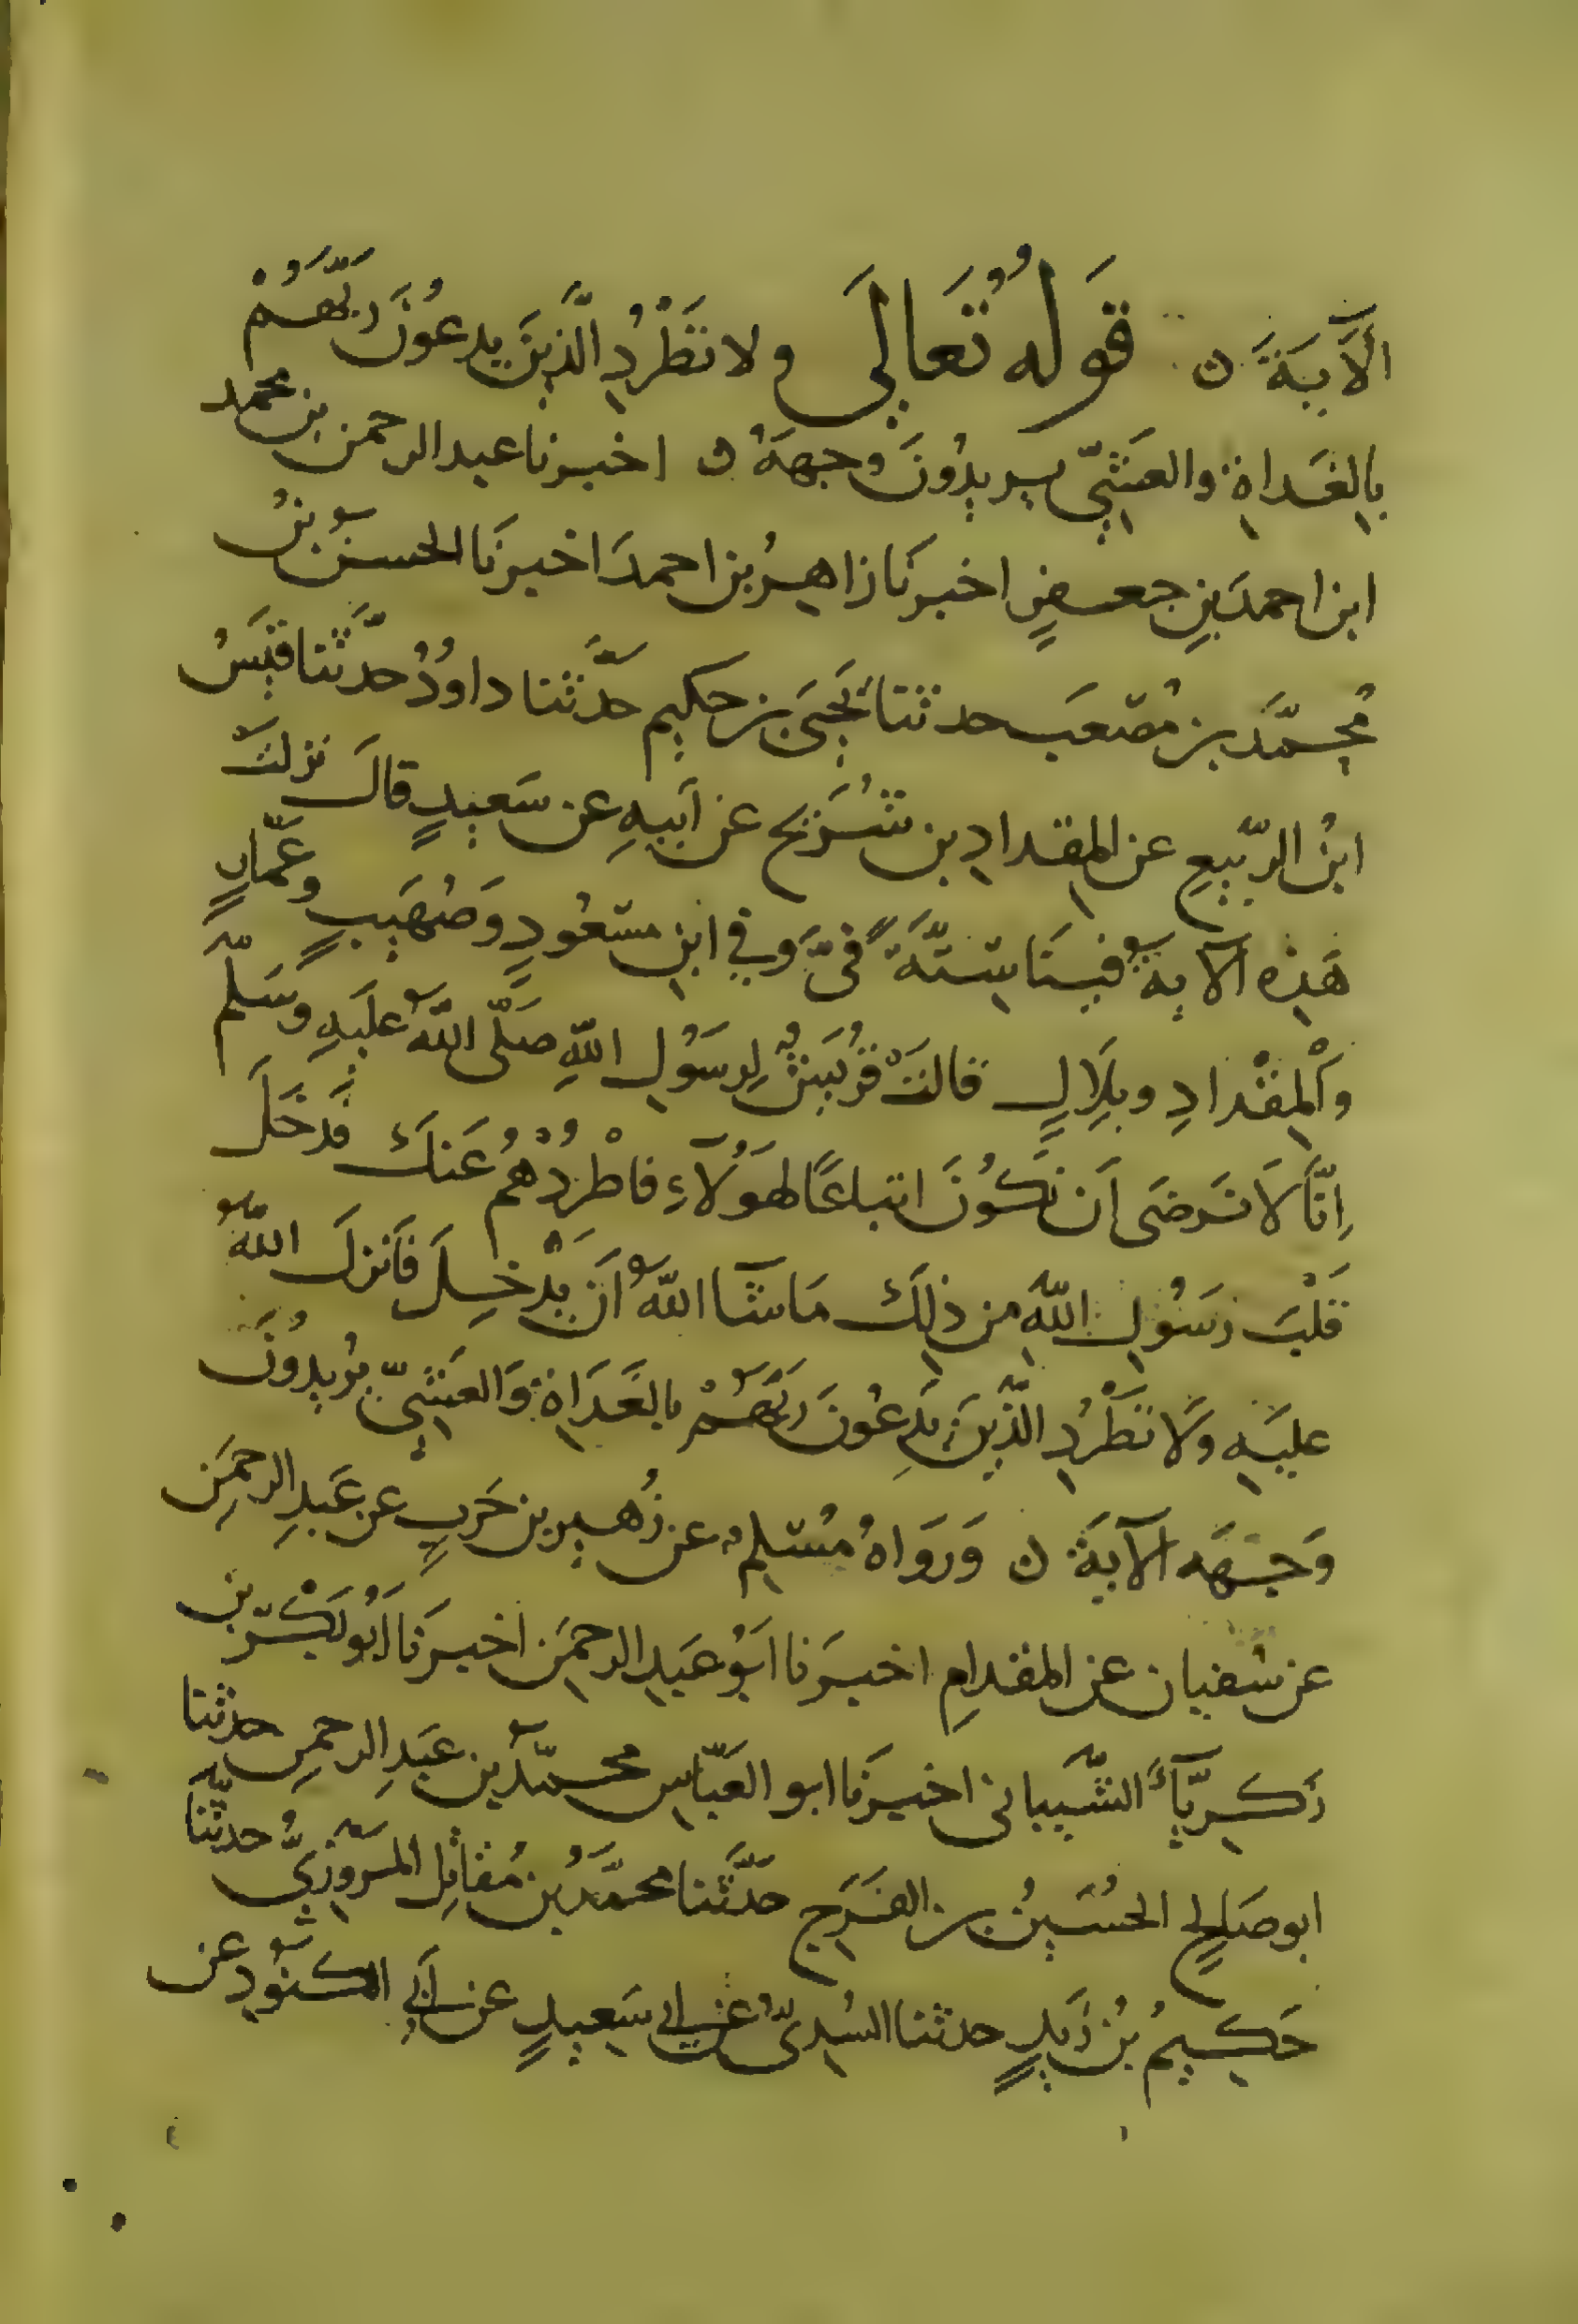 الآيَةَ ن قَولُهُ تَعَالَى ولا تَطْرُدِ الَّذِينَ يدعُونَ رَبَّهُمْ
بالغَداةِ والعَشِيِّ يريدُونَ وجهَهُ ن اخبرنا عبد الرحمن بن محمد
ابن احمدَ بنِ جعفرٍ اخبرنَا زاهرُ بن احمدَ اخبرنَا الحسينُ بنُ
مُحمَّد بن مُصْعَب حدثنا يَحيَى بن حكيم حدَّثنا داودُ حدَّثنا قيسُ
ابنُ الرّبيعِ عن المقدادِ بن شُرَيح عن اَبيهِ عن سَعيدٍ قالَ نزلتْ
هَذِه الآيةُ فينَا ستَّةً فىَّ وفي ابنِ مسْعُودٍ وَصُهَيبٍ وعَمَّارٍ
وَالْمِقْدادِ وبِلَالٍ قالتْ قُرَيشٌ لِرسُولِ اللهِ صَلّى اللهُ علَيهِ وسَلّم
اِنَّا لَا نَرضَى اَن نَكُونَ اتباعًا لهَؤُلآءِ فاطْرُدْهُمْ عَنكَ فدَخَلَ
قَلْبَ رَسُولِ اللهِ من ذلِكَ مَا شَا اللهُ اَن يَدْخلَ فَانزلَ اللهُ
عليَهِ وَلَا تَطْرُدِ الَّذِينَ يَدعُونَ رَبَّهُمْ بالغَدَاةِ وَالعَشِيِّ يُرِيدُونَ
وَجهَه الآيةَ ن وَرَوَاهُ مُسْلِمٌ عن زُهيرِ بن حَربٍ عن عَبدِ الرحمَنِ
عن سُفيان عن المقدامِ اخبَرنا ابُو عبدِ الرحمَن اخبرَنَا اَبُو بَكْر بن
زَكرِيَّآءَ الشَّيبانى اخبَرنَا ابو العَبّاسِ محمّدُ بن عَبدِ الرحمن حدثنا
ابو صَالحٍ الحُسَينُ بن الفَرَجِ حدَّثَنا محمَّدُ بن مُقاتِل المَرْوَزِيُّ حدثّنا
حَكيمُ بُن زَيدٍ حدثنا السُدىّ عن ابى سَعيدٍ عن اَبي الكنُودِ عن